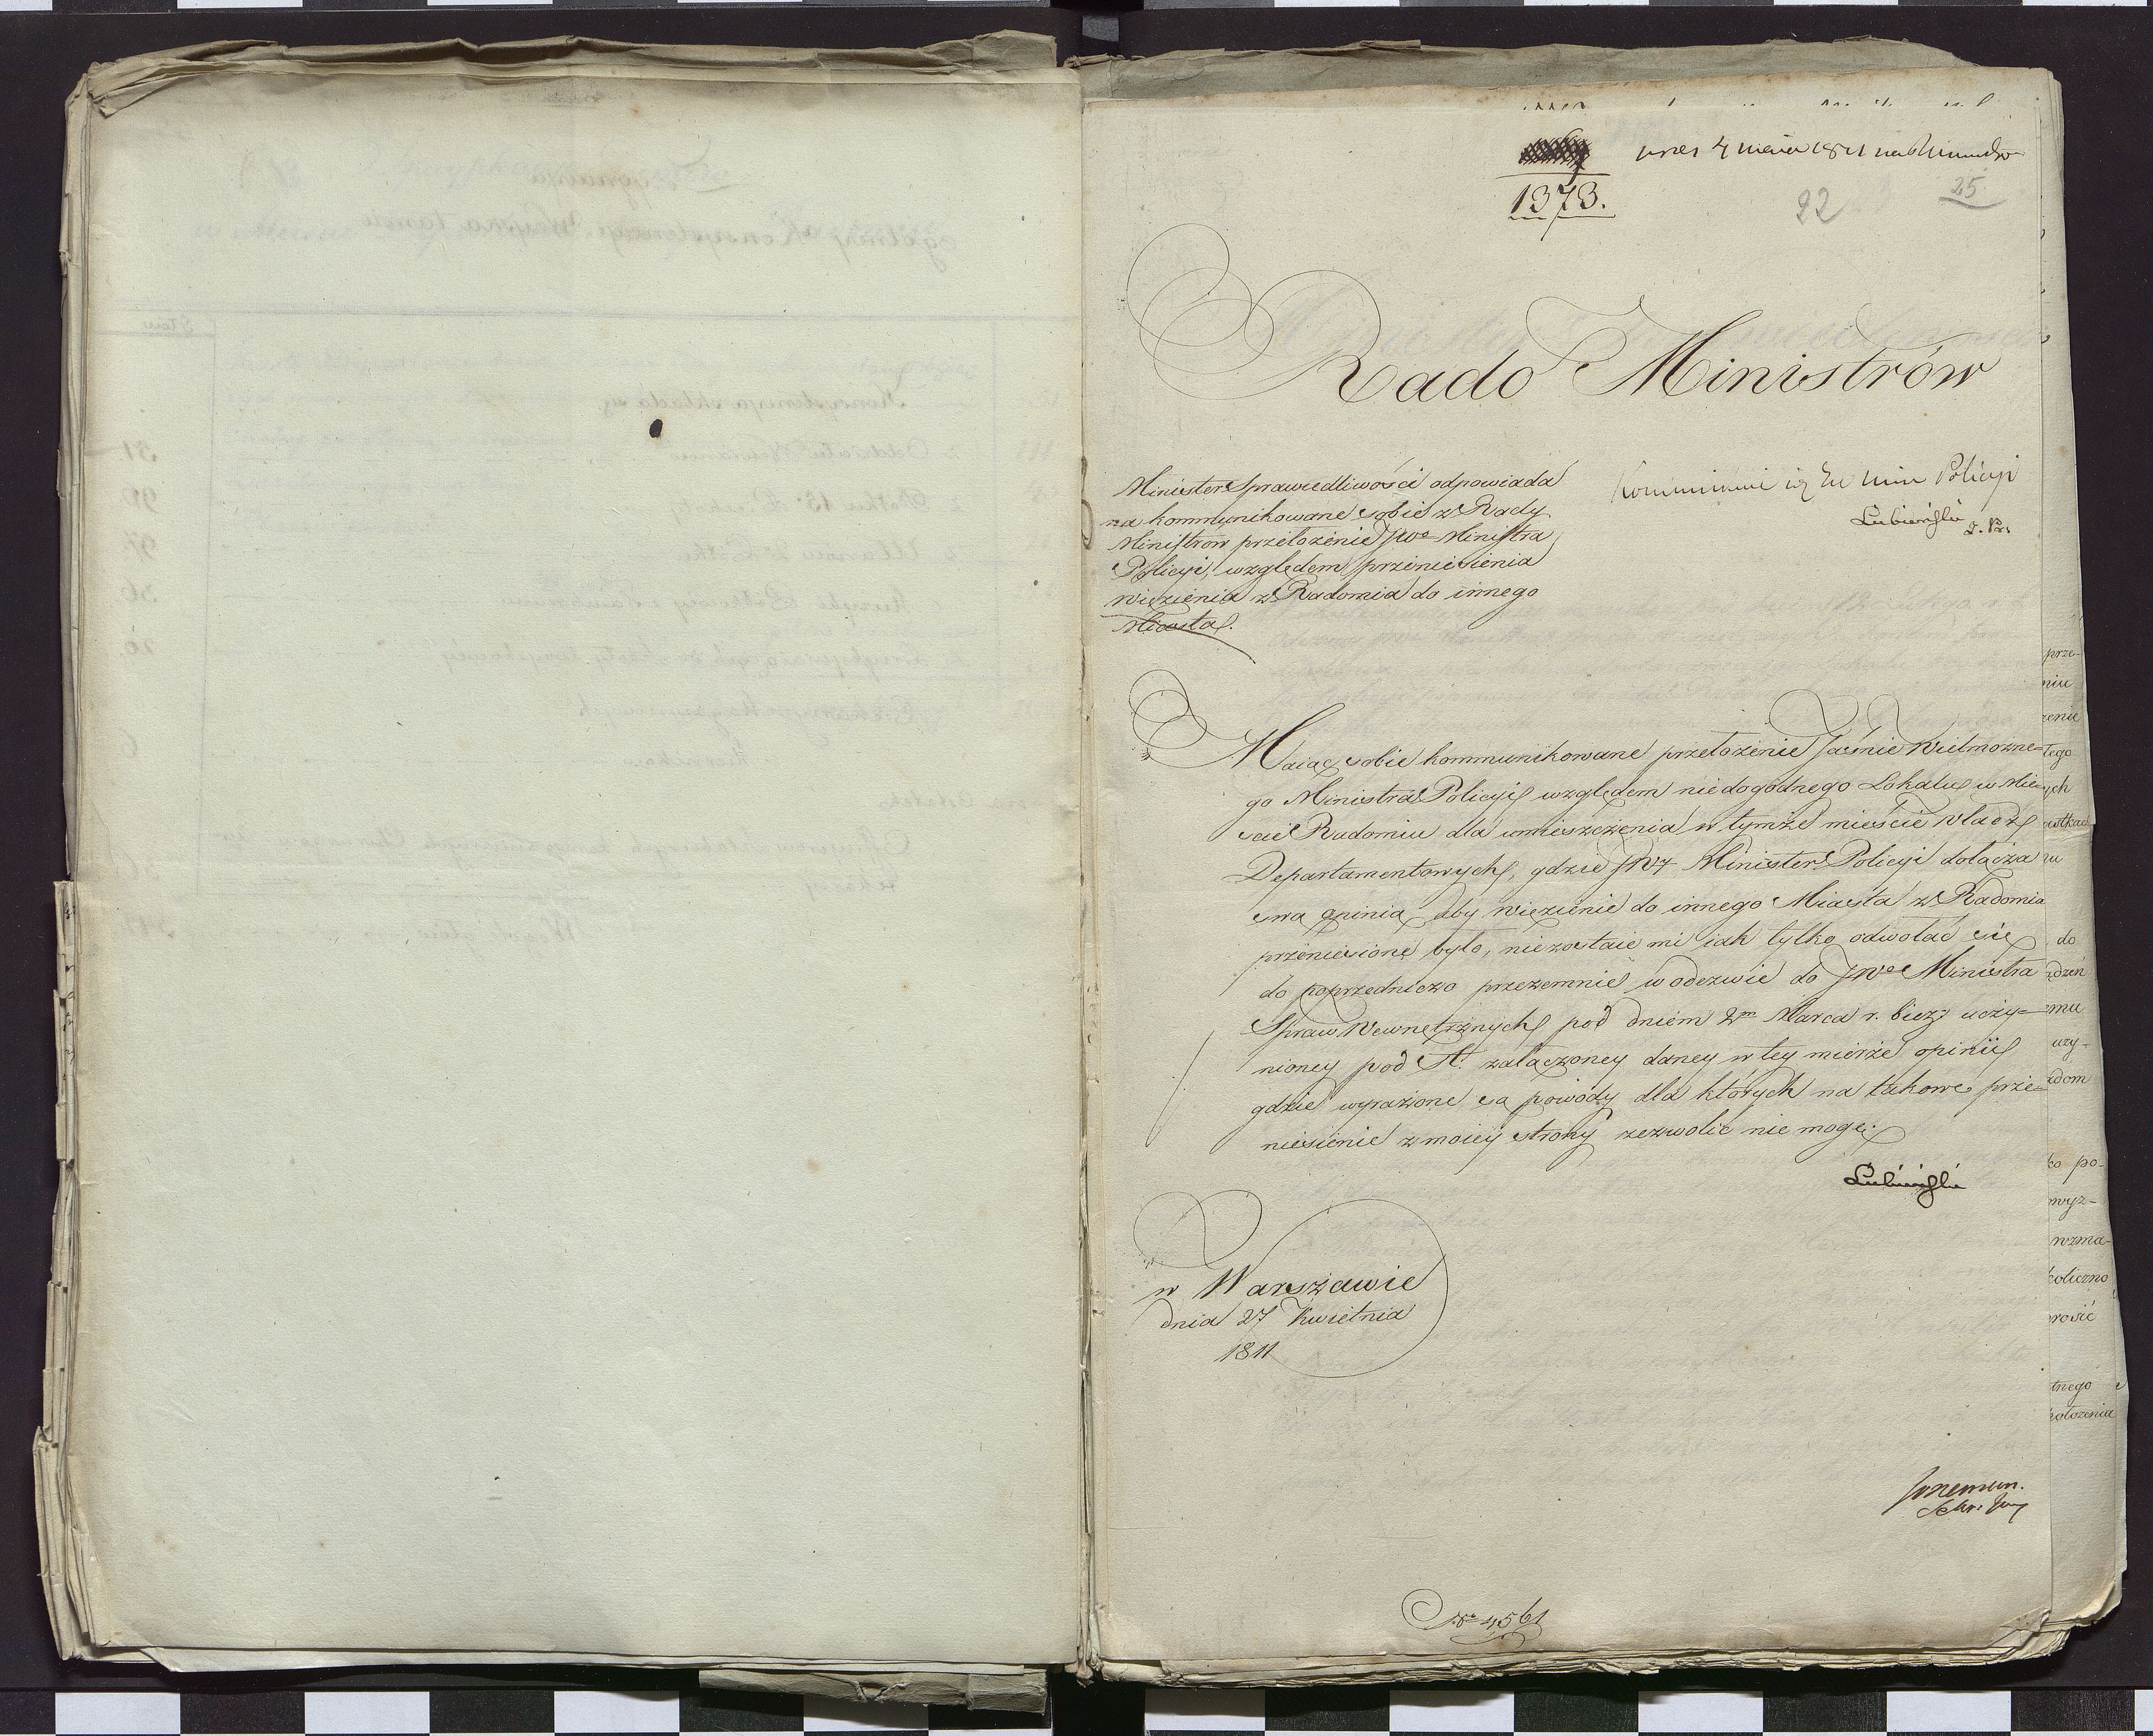 1373.
22
25
Rado Ministrów
Minister Sprawiedliwości odpowiada
na kommunikowane sobie z Rady
Ministrow przełożenie JWo Ministra
Policyi, względem przeniesienia
więzienia z Radomia do innego
Miasta.
Min Policyi
Lubieński
Maiąc sobie kommunikowane przełożenie Jaśnie Wielmożne=
go Ministra Policyi względem niedogodnego Lokalu w Mie=
scie Radomiu dla umieszczenia w tymże mieście Władz
Departamentowych, gdzie JWy Minister Policyi dołącza
swą opinią aby więzienie do innego Miasta z Radomia
przeniesione było, niezostaie mi iak tylko odwołać się
do poprzedniczo przezemnie w odezwie do JWo Ministra
Spraw Wewnętrznych pod dniem 2m Marca r. bieź: uczy=
nioney pod A. załączoney daney w tey mierze opinii
gdzie wyrażone są powody dla których na takowe prze=
niesienie z moiey strony zezwolić nie mogę.
Lubieński
w Warszawie
dnia 27 Kwietnia
1811
Sekr: Jnny
No 4561
prze-
niu
zenie
tego
ych
do
emu
uzy-
adom
ko po-
wyz-
wzma-
koliczno
rosić
tnego
ołożenia